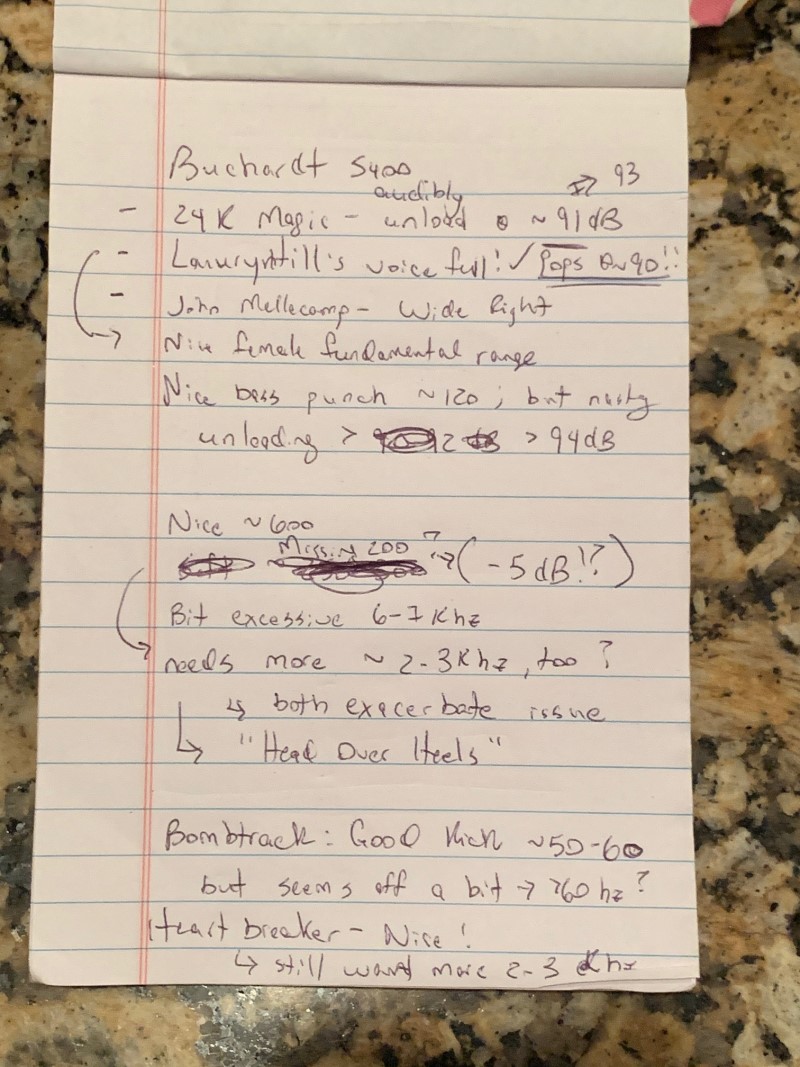 Buchardt S400
audibly → 93
- 24K Magic - unload @ ~91dB
- Lauryn Hill's voice full! ✓ Pops @~90!!
- John Mellecamp - Wide Right
→ Nice female fundamental range
Nice bass punch ~120; but nasty
unloading > > 94dB
Nice ~600
Missing 200 ? → (-5dB!?)
Bit excessive 6-7Khz
→ needs more ~ 2-3Khz, too?
↳ both exacerbate issue
↳ "Head Over Heels"
Bombtrack: Good Kick ~50-60
but seems off a bit → >60hz?
Heart breaker - Nice!
↳ still want more 2-3 Khz